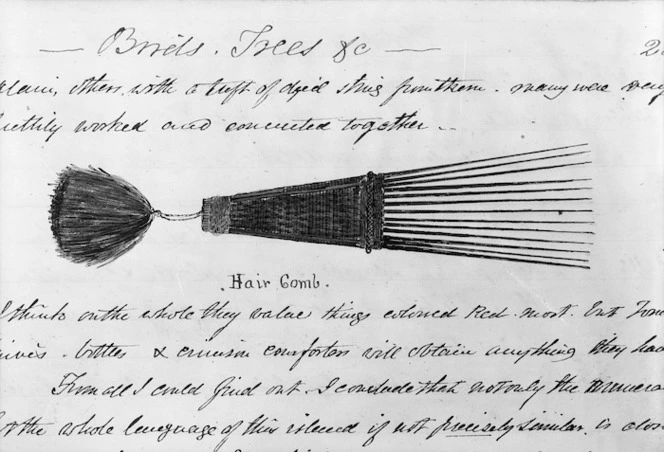 — Birds. Trees &c — 2
plain, others with a tuft of dyed string from them. many were very
worked and cemented together ..
Hair Comb.
I think on the whole they value things colored Red most. but
bottles & crimson comforters will obtain anything they have
From all I could find out. I conclude that not only the numera
the whole language of this island if not precisely similar. is